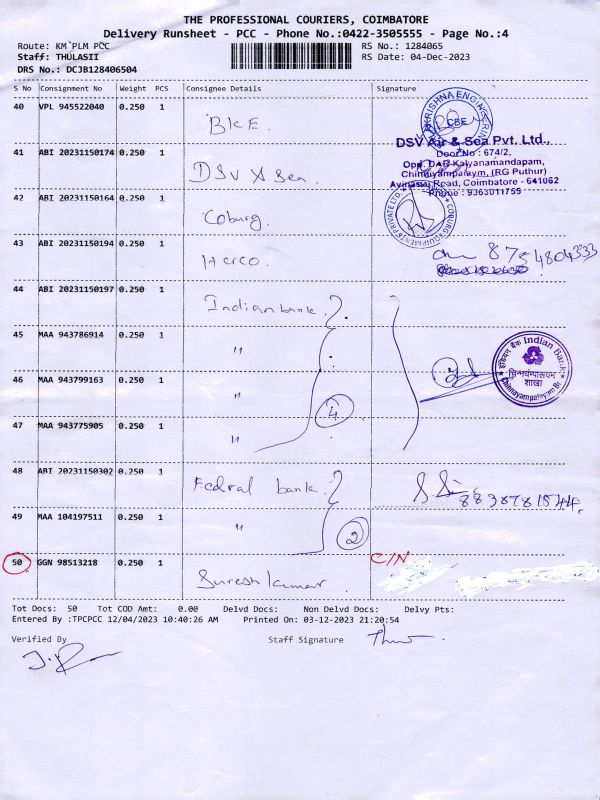 THE PROFESSIONAL COURIERS, COIMBATORE
Delivery Runsheet - PCC - Phone No.:0422-3505555 - Page No.:4
Route: KM PLM PCC
RS No.: 1284065
Staff: THULASII
RS Date: 04-Dec-2023
DRS No.: DCJB128406504
S No Consignment No Weight PCS Consignee Details Signature
40 VPL 945522040 0.250 1 BKE
KRISHNA ENGINEERING
CBE
41 ABI 20231150174 0.250 1 DSV A Sea
DSV Air & Sea Pvt. Ltd.,
Door No : 674/2,
Opp. DAR Kalyanamandapam,
Chinniyampalaym, (RG Puthur)
Avinassi Road, Coimbatore - 641062
Phone : 9363011755
42 ABI 20231150164 0.250 1 Coburg
COBURG EQUIPMENTS PRIVATE LTD.
43 ABI 20231150194 0.250 1 Herco
8754804333
44 ABI 20231150197 0.250 1 Indian bank
45 MAA 943786914 0.250 1 "
इंडियन बैंक Indian Bank
चिन्नयंपालयम
शाखा
Chinnayampalayam Br.
46 MAA 943799163 0.250 1 "
4
47 MAA 943775905 0.250 1 "
48 ABI 20231150302 0.250 1 Fedral bank
49 MAA 104197511 0.250 1 "
2
50 GGN 98513218 0.250 1 Suresh kumar
C/N
Tot Docs: 50 Tot COD Amt: 0.00 Delvd Docs: Non Delvd Docs: Delvy Pts:
Entered By :TPCPCC 12/04/2023 10:40:26 AM Printed On: 03-12-2023 21:20:54
Verified By
Staff Signature